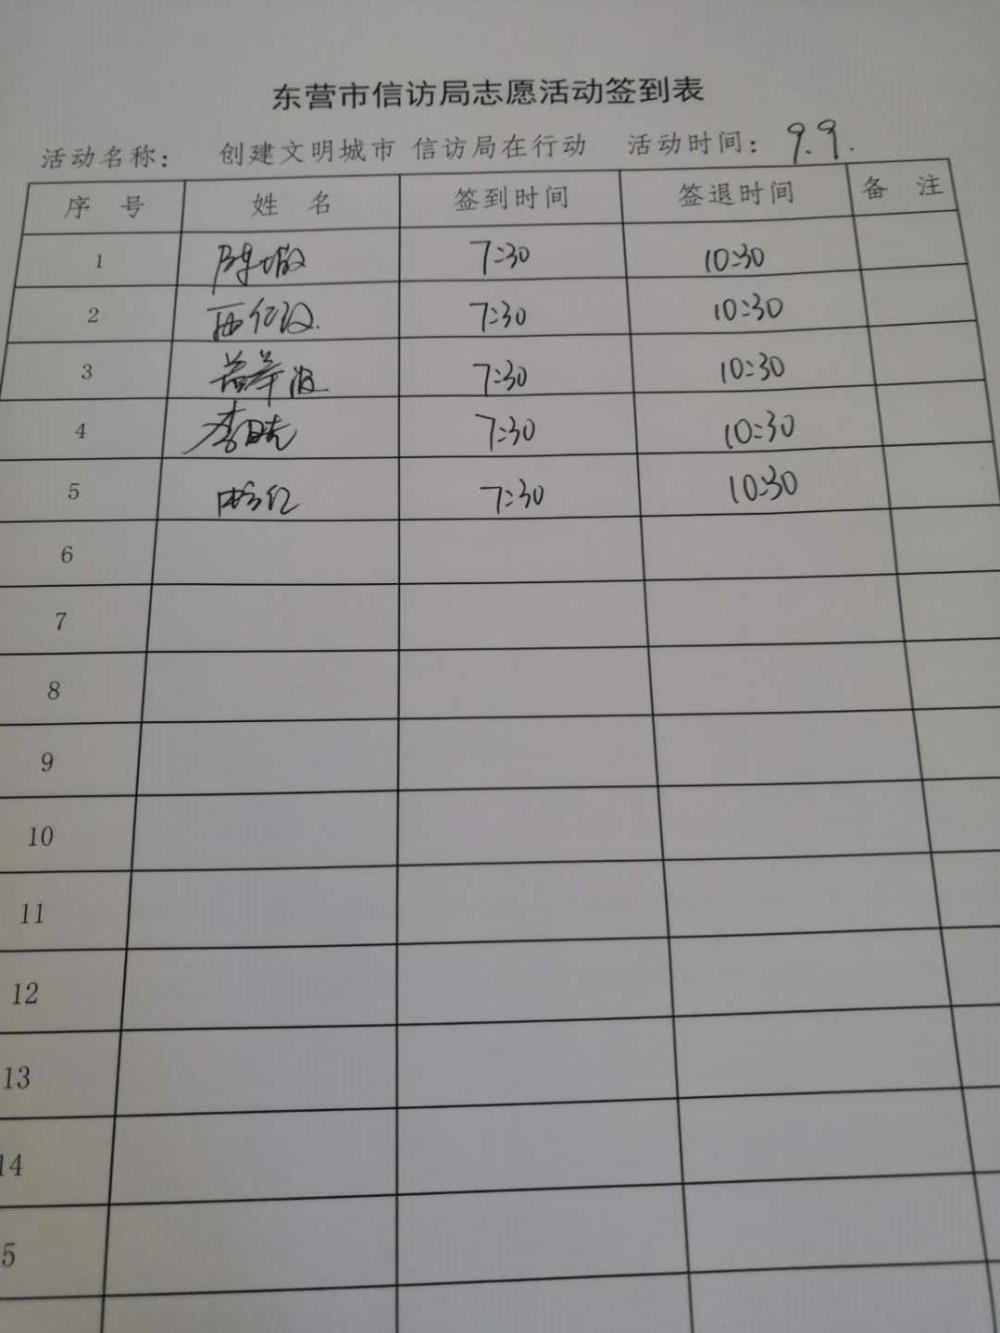 东营市信访局志愿活动签到表
活动名称： 创建文明城市 信访局在行动 活动时间：9.9.
序 号 姓 名 签到时间 签退时间 备 注
1 7:30 10:30
2 7:30 10:30
3 7:30 10:30
4 李 7:30 10:30
5 7:30 10:30
6
7
8
9
10
11
12
13
14
5